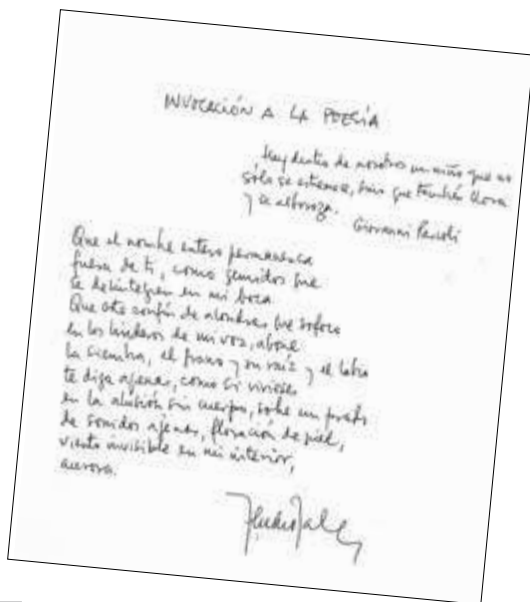 INVOCACIÓN A LA POESÍA
Hay dentro de nosotros un niño que no
sólo se estremece, sino que también llora
y se alboroza.
Giovanni Pascoli
Que el nombre entero permanezca
fuera de ti, como gemidos que
se desintegren en mi boca
Que este confín de alondras que sofoca
en los linderos de mi voz, abone
la siembra, el fruto y su raíz y el labio
te diga apenas, como si vivieses
en la alusión sin cuerpo, sobre un prado
de sonidos ajenos, floración de piel,
viento invisible en mi interior,
aurora.